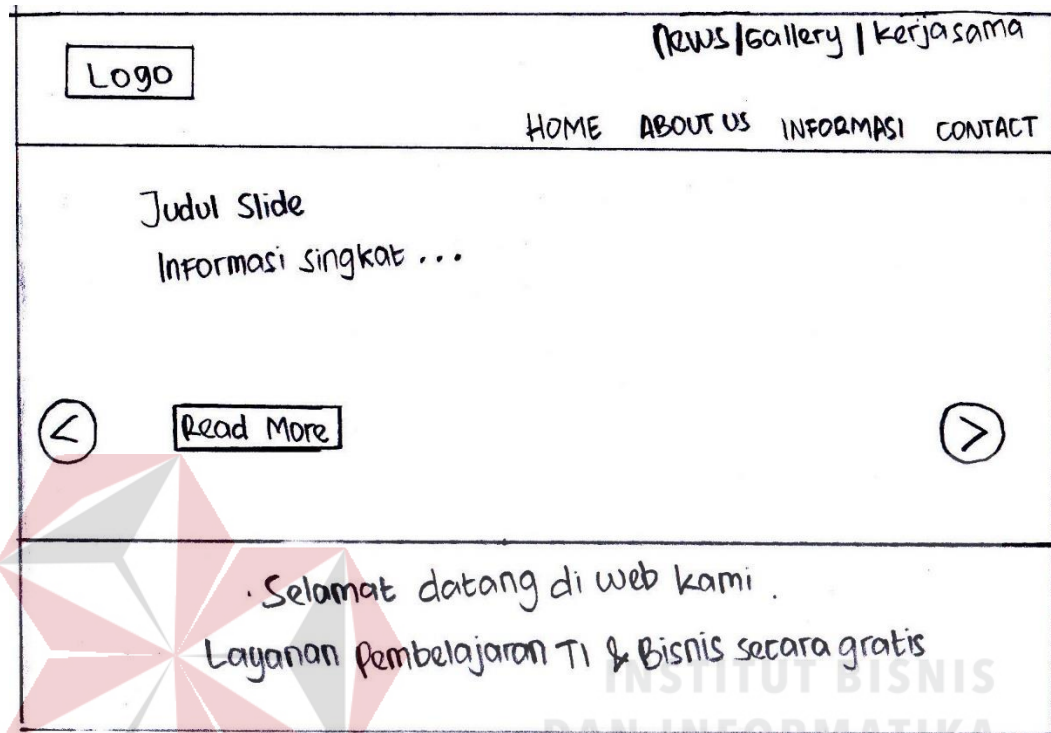 News | Gallery | Kerjasama
Logo
HOME ABOUT US INFORMASI CONTACT
Judul Slide
Informasi singkat ...
< Read More >
. Selamat datang di web kami .
Layanan Pembelajaran TI & Bisnis secara gratis
INSTITUT BISNIS
DAN INFORMATIKA